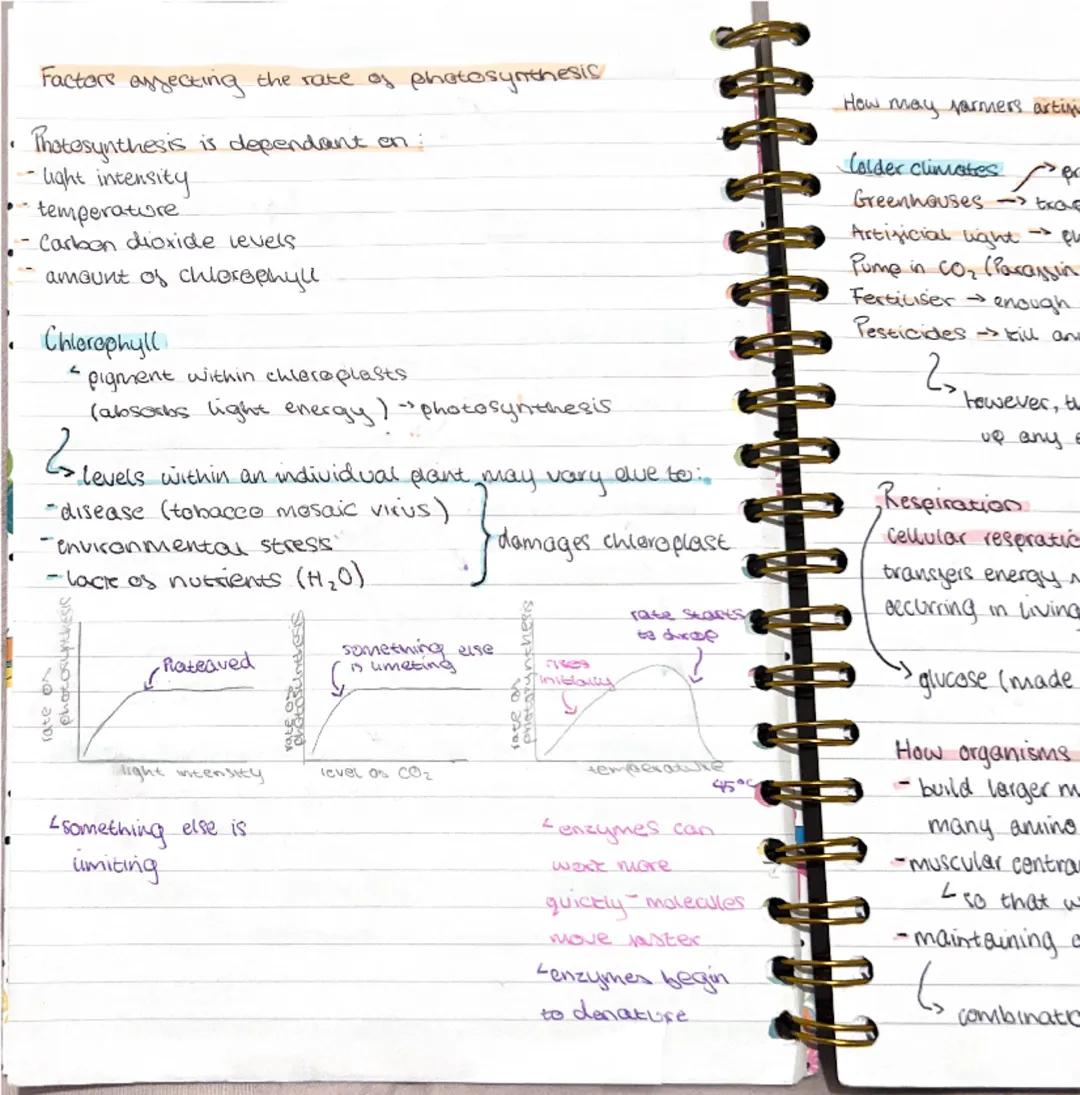 Factors affecting the rate of photosynthesis
Photosynthesis is dependant on :
- light intensity
- temperature
- Carbon dioxide levels
- amount of chlorophyll
Chlorophyll
pigment within chloroplasts
(absorbs light energy) → photosynthesis
levels within an individual plant may vary due to:
- disease (tobacco mosaic virus)
- environmental stress
- lack of nutrients (H₂O)
damages chloroplast
rate of photosynthesis
Plateaued
light intensity
something else is
limiting
rate of photosynthesis
something else
is limeting
level of CO₂
rate of photosynthesis
rises
initially
rate starts
to drop
temperature
45°C
enzymes can
work more
quickly - molecules
move faster
enzymes begin
to denature
How may farmers
Colder climates
Greenhouses →
Artificial light →
Pump in CO₂ (Paraffin
Fertiliser → enough
Pesticides → kill
however,
up any
Respiration
cellular
transfers energy
occurring in living
glucose (made
How organisms
- build larger
many amino
- muscular
so that
- maintaining